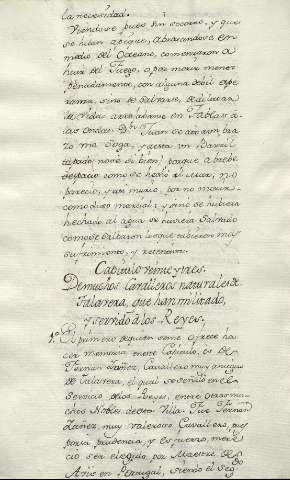 la necesidad.
Viendose pues sin socorro, y que
se hiban a pique, abrasandose en
medio del Oceano, comenzaron a
huir del Fuego, o por morir menos
penadamente, con alguna debil espe-
ranza, sino de salvarse, de dilatar la
vida, arrojandose en Tablas a
las ondas. Dn. Juan se
una soga, y asta un Barril
(atado no se si bien) porque a breve
espacio como se hechó al Mar, no
parecio, y asi murio, por no morir
como dijo Marcial: y sino se hubiera
hechado al agua se hubiera salvado
como se salbaron los que tubieron mas
sufrimiento, y
Capitulo veinte y tres.
De muchos Cavalleros naturales de
Talavera, que han militado,
y servido a los Reyes.
1.º El primero de quien se me ofrece ha-
cer memoria en este Capitulo, es de
Fernan Yañez, Cavallero muy antiguo
de Talavera, el qual se señaló en el
servicio de los Reyes, entre otros mu-
chos Nobles de esta Villa. Fue Fernan
Yañez, muy valeroso Cavallero, y
por su prudencia, y esfuerzo, mere-
cio ser elegido por Maestre de
Avis en Portugal, siendo el Segdo.